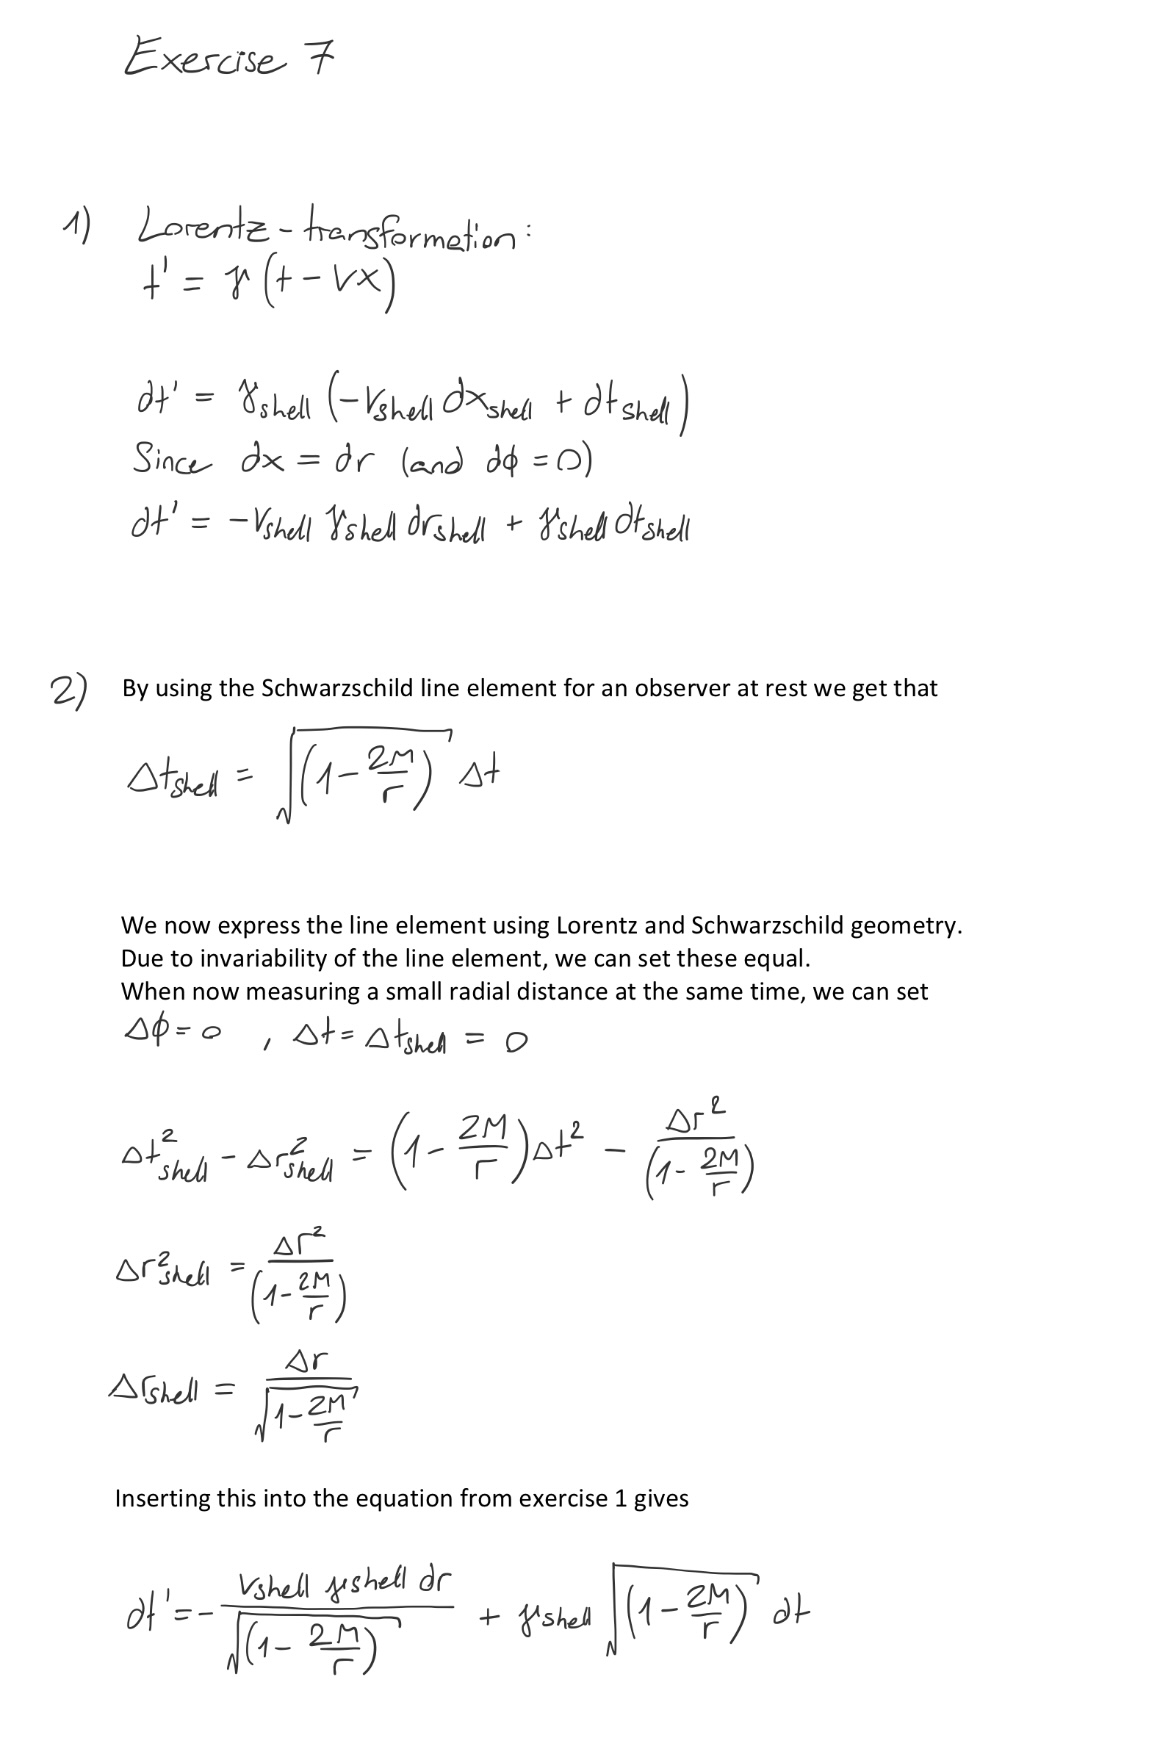 Exercise 7
1) Lorentz-transformetion:
t' = γ(t - vx)
dt' = γshell (-Vshell dxshell + dtshell)
Since dx = dr (and dϕ = 0)
dt' = -Vshell γshell drshell + γshell dtshell
2) By using the Schwarzschild line element for an observer at rest we get that
Δtshell = √(1 - 2M/r) Δt
We now express the line element using Lorentz and Schwarzschild geometry.
Due to invariability of the line element, we can set these equal.
When now measuring a small radial distance at the same time, we can set
Δϕ = 0 , Δt = Δtshell = 0
Δt²shell - Δr²shell = (1 - 2M/r)Δt² - Δr²/(1 - 2M/r)
Δr²shell = Δr²/(1 - 2M/r)
Δrshell = Δr/√(1 - 2M/r)
Inserting this into the equation from exercise 1 gives
dt' = - Vshell γshell dr/√(1 - 2M/r) + γshell √(1 - 2M/r) dt